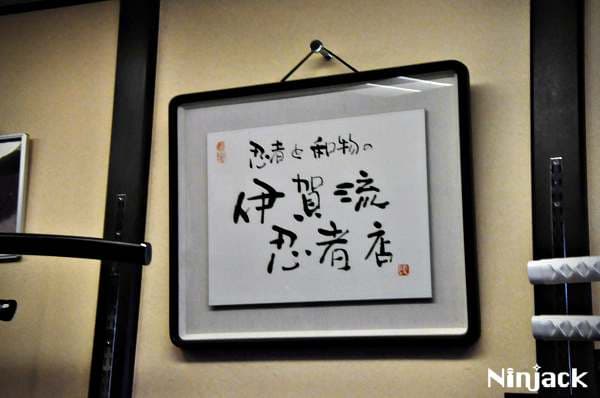 忍者と和物の
伊賀流
忍者店
Ninjack